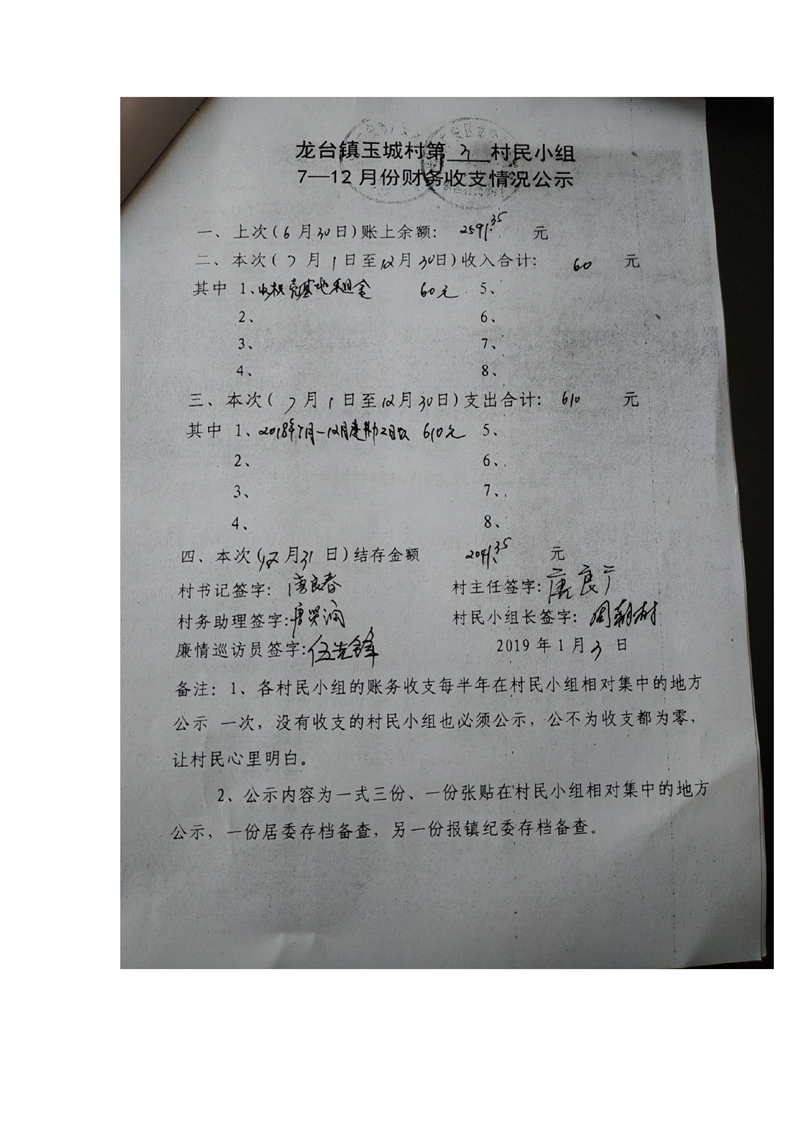 龙台镇玉城村第 3 村民小组
7—12月份财务收支情况公示
一、上次(6月30日)账上余额: 2591.35 元
二、本次(7月1日至12月30日)收入合计: 60 元
其中 1、基地租金 60元 5、
2、 6、
3、 7、
4、 8、
三、本次(7月1日至12月30日)支出合计: 610 元
其中 1、2018年7月—12月 610元 5、
2、 6、
3、 7、
4、 8、
四、本次(12月31日)结存金额 2041.35 元
村书记签字: 唐良春 村主任签字: 唐良广
村务助理签字: 唐 村民小组长签字: 周朝树
廉情巡访员签字: 伍先锋 2019年1月3日
备注: 1、各村民小组的账务收支每半年在村民小组相对集中的地方
公示 一次，没有收支的村民小组也必须公示，公不为收支都为零，
让村民心里明白。
2、公示内容为一式三份、一份张贴在村民小组相对集中的地方
公示，一份居委存档备查，另一份报镇纪委存档备查。